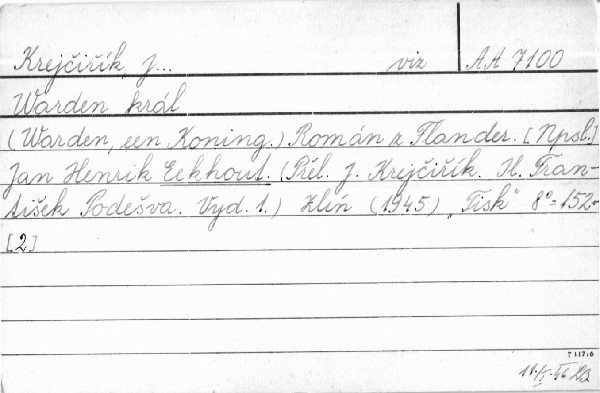 Krejčiřík, J... viz AA 7100
Warden král
(Warden, een Koning.) Román z Flander. [Npsl.]
Jan Henrik Eekhout. (Přel. J. Krejčiřík. Il. Fran-
tišek Podešva. Vyd. 1.) Zlín (1945) „Tisk" 8°=152+
[2]
T 117:6